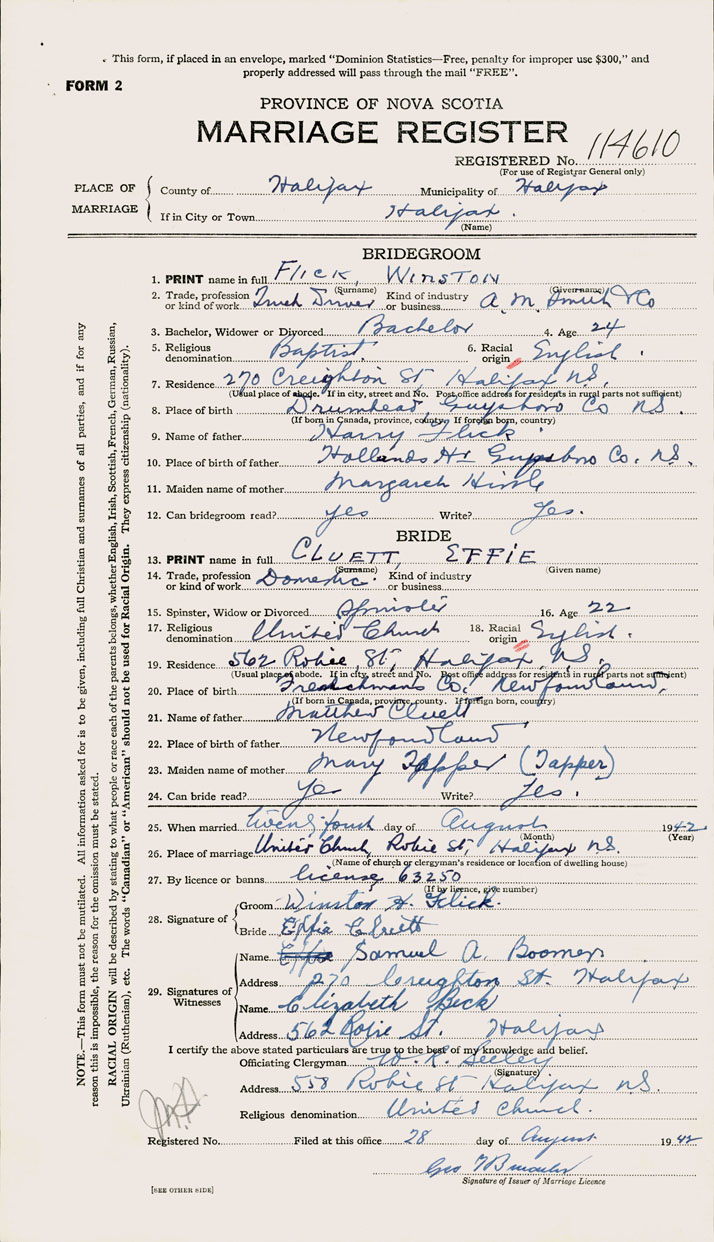 This form, if placed in an envelope, marked "Dominion Statistics—Free, penalty for improper use $300," and
properly addressed will pass through the mail "FREE".
FORM 2
PROVINCE OF NOVA SCOTIA
MARRIAGE REGISTER
REGISTERED No. 114610
(For use of Registrar General only)
PLACE OF MARRIAGE
County of Halifax Municipality of Halifax
If in City or Town Halifax.
(Name)
BRIDEGROOM
1. PRINT name in full FLICK, WINSTON
(Surname) (Given name)
2. Trade, profession or kind of work Truck Driver Kind of industry or business A. M. Smith & Co
3. Bachelor, Widower or Divorced Bachelor 4. Age 24
5. Religious denomination Baptist. 6. Racial origin English.
7. Residence 270 Creighton St, Halifax N.S.
(Usual place of abode. If in city, street and No. Post office address for residents in rural parts not sufficient)
8. Place of birth Drumhead, Guysboro Co N.S.
(If born in Canada, province, county. If foreign born, country)
9. Name of father Harry Flick.
10. Place of birth of father Hollands Hr Guysboro Co. N.S.
11. Maiden name of mother Margaret
12. Can bridegroom read? yes Write? Yes.
BRIDE
13. PRINT name in full CLUETT, EFFIE
(Surname) (Given name)
14. Trade, profession or kind of work Domestic. Kind of industry or business
15. Spinster, Widow or Divorced Spinster 16. Age 22
17. Religious denomination United Church 18. Racial origin English.
19. Residence 562 Robie St, Halifax, N.S.
(Usual place of abode. If in city, street and No. Post office address for residents in rural parts not sufficient)
20. Place of birth Frenchmans Co, Newfoundland,
(If born in Canada, province, county. If foreign born, country)
21. Name of father Matthew Cluett
22. Place of birth of father Newfoundland
23. Maiden name of mother Mary Tapper (Tapper)
24. Can bride read? Yes Write? Yes.
25. When married day of August 1942
(Month) (Year)
26. Place of marriage United Church, Robie St, Halifax N.S.
(Name of church or clergyman's residence or location of dwelling house)
27. By licence or banns license 63250
(If by licence, give number)
28. Signature of
Groom Winston H. Flick.
Bride Effie Cluett
29. Signatures of Witnesses
Name Effie Samuel A. Boomer
Address 270 Creighton St. Halifax
Name Elizabeth Beck
Address 562 Robie St. Halifax
I certify the above stated particulars are true to the best of my knowledge and belief.
Officiating Clergyman Seeley
(Signature)
Address 558 Robie St Halifax N.S.
Religious denomination United Church.
Registered No. Filed at this office 28 day of August 1942
Geo
Signature of Issuer of Marriage Licence
[SEE OTHER SIDE]
NOTE.—This form must not be mutilated. All information asked for is to be given, including full Christian and surnames of all parties, and if for any
reason this is impossible, the reason for the omission must be stated.
RACIAL ORIGIN will be described by stating to what people or race each of the parents belongs, whether English, Irish, Scottish, French, German, Russian,
Ukrainian (Ruthenian), etc. The words "Canadian" or "American" should not be used for Racial Origin. They express citizenship (nationality).